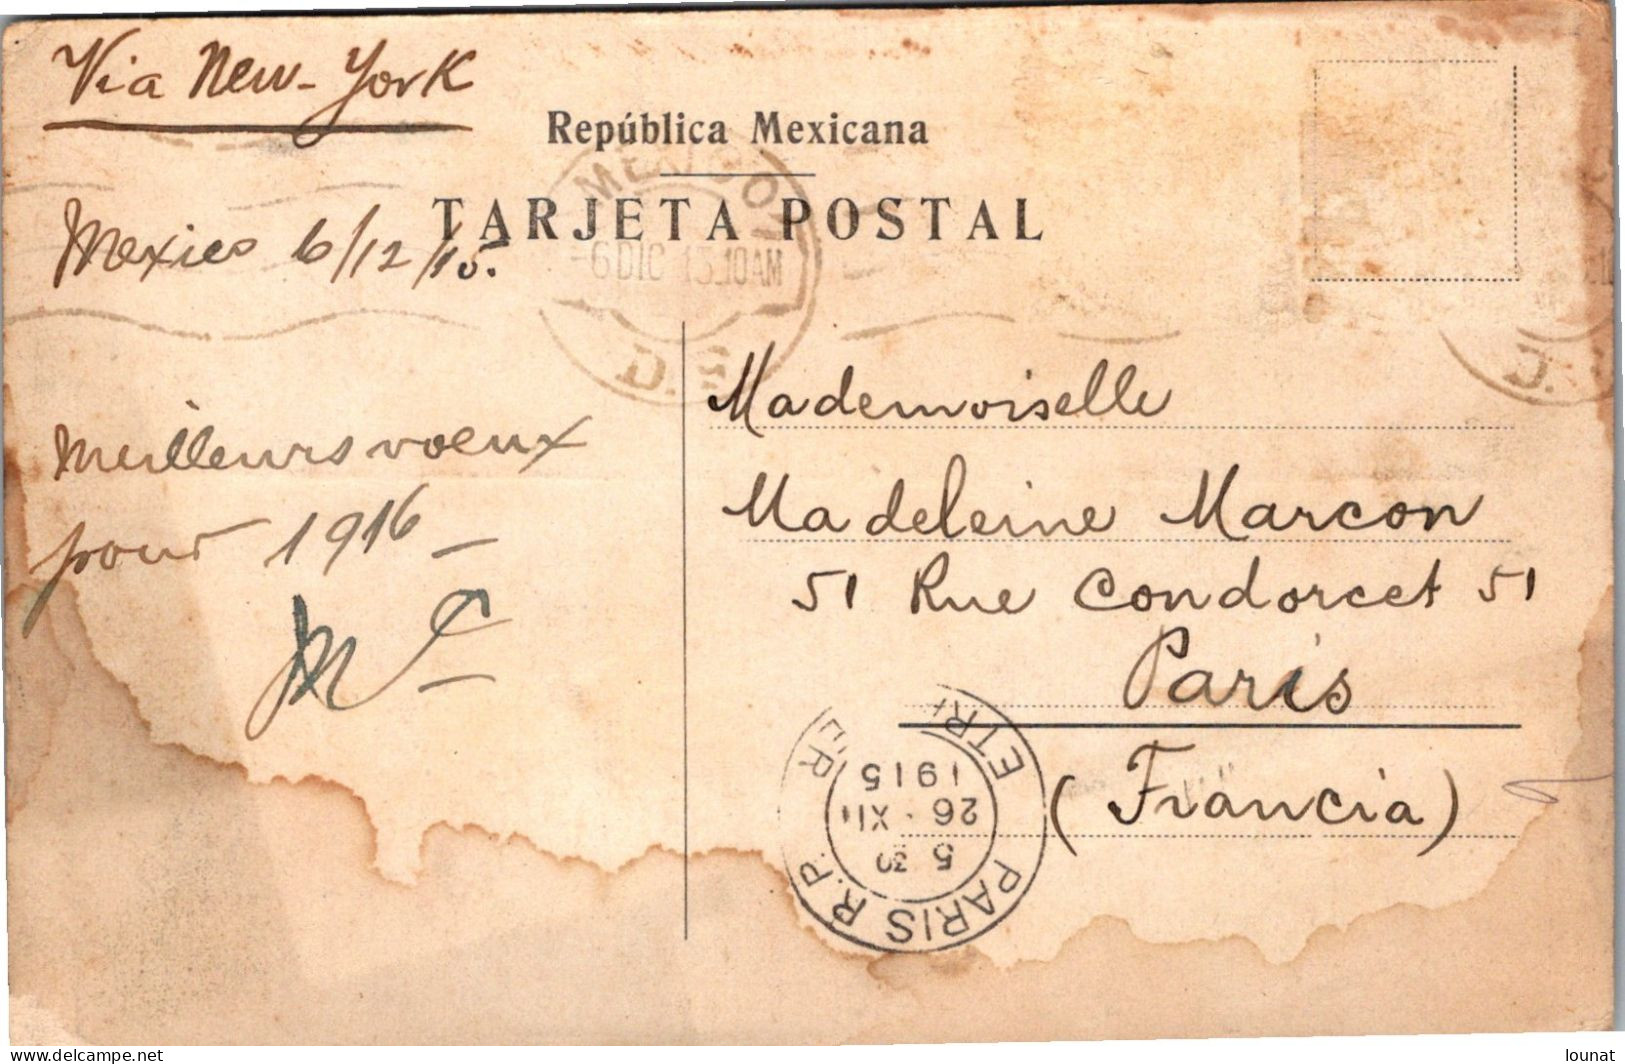 Via New-York
República Mexicana
TARJETA POSTAL
MEXICO
-6 DIC 15 10 AM
D.F.
Mexico 6/12/15.
Meilleurs voeux
pour 1916 -
Mademoiselle
Madeleine Marcon
51 Rue Condorcet 51
Paris
(Francia)
PARIS R.P.
ETR ER
5 30
26 . XII
1915
D.
delcampe.net
lounat